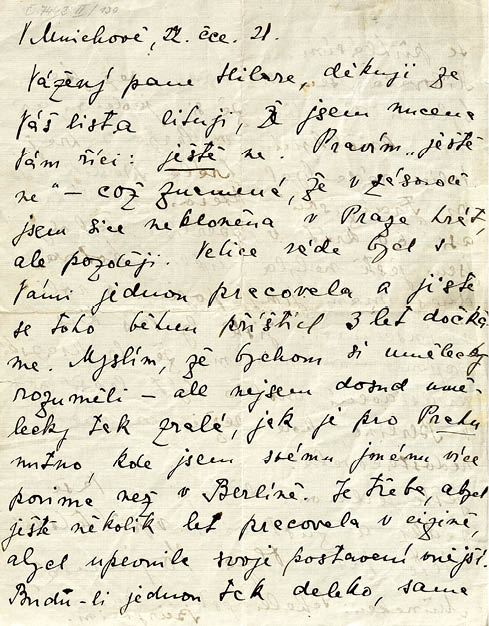 V Mnichově, 22. čce. 21.
Vážený pane Hilare, děkuji za
Váš list a lituji, že jsem nucena
Vám říci: ještě ne. Pravím „ještě
ne" – což znamená, že v zásadě
jsem sice nakloněna v Praze hrát,
ale později. Velice ráda bych s
Vámi jednou pracovala a jistě
se toho během příštích 3 let dočká
me. Myslím, že bychom si umělecky
rozuměli – ale nejsem dosud umě-
lecky tak zralá, jak je pro Prahu
nutno, kde jsem svému jménu více
povinna než v Berlíně. Je třeba, abych
ještě několik let pracovala v cizině,
abych upevnila svoje postavení vnější.
Budu-li jednou tak daleko, sama